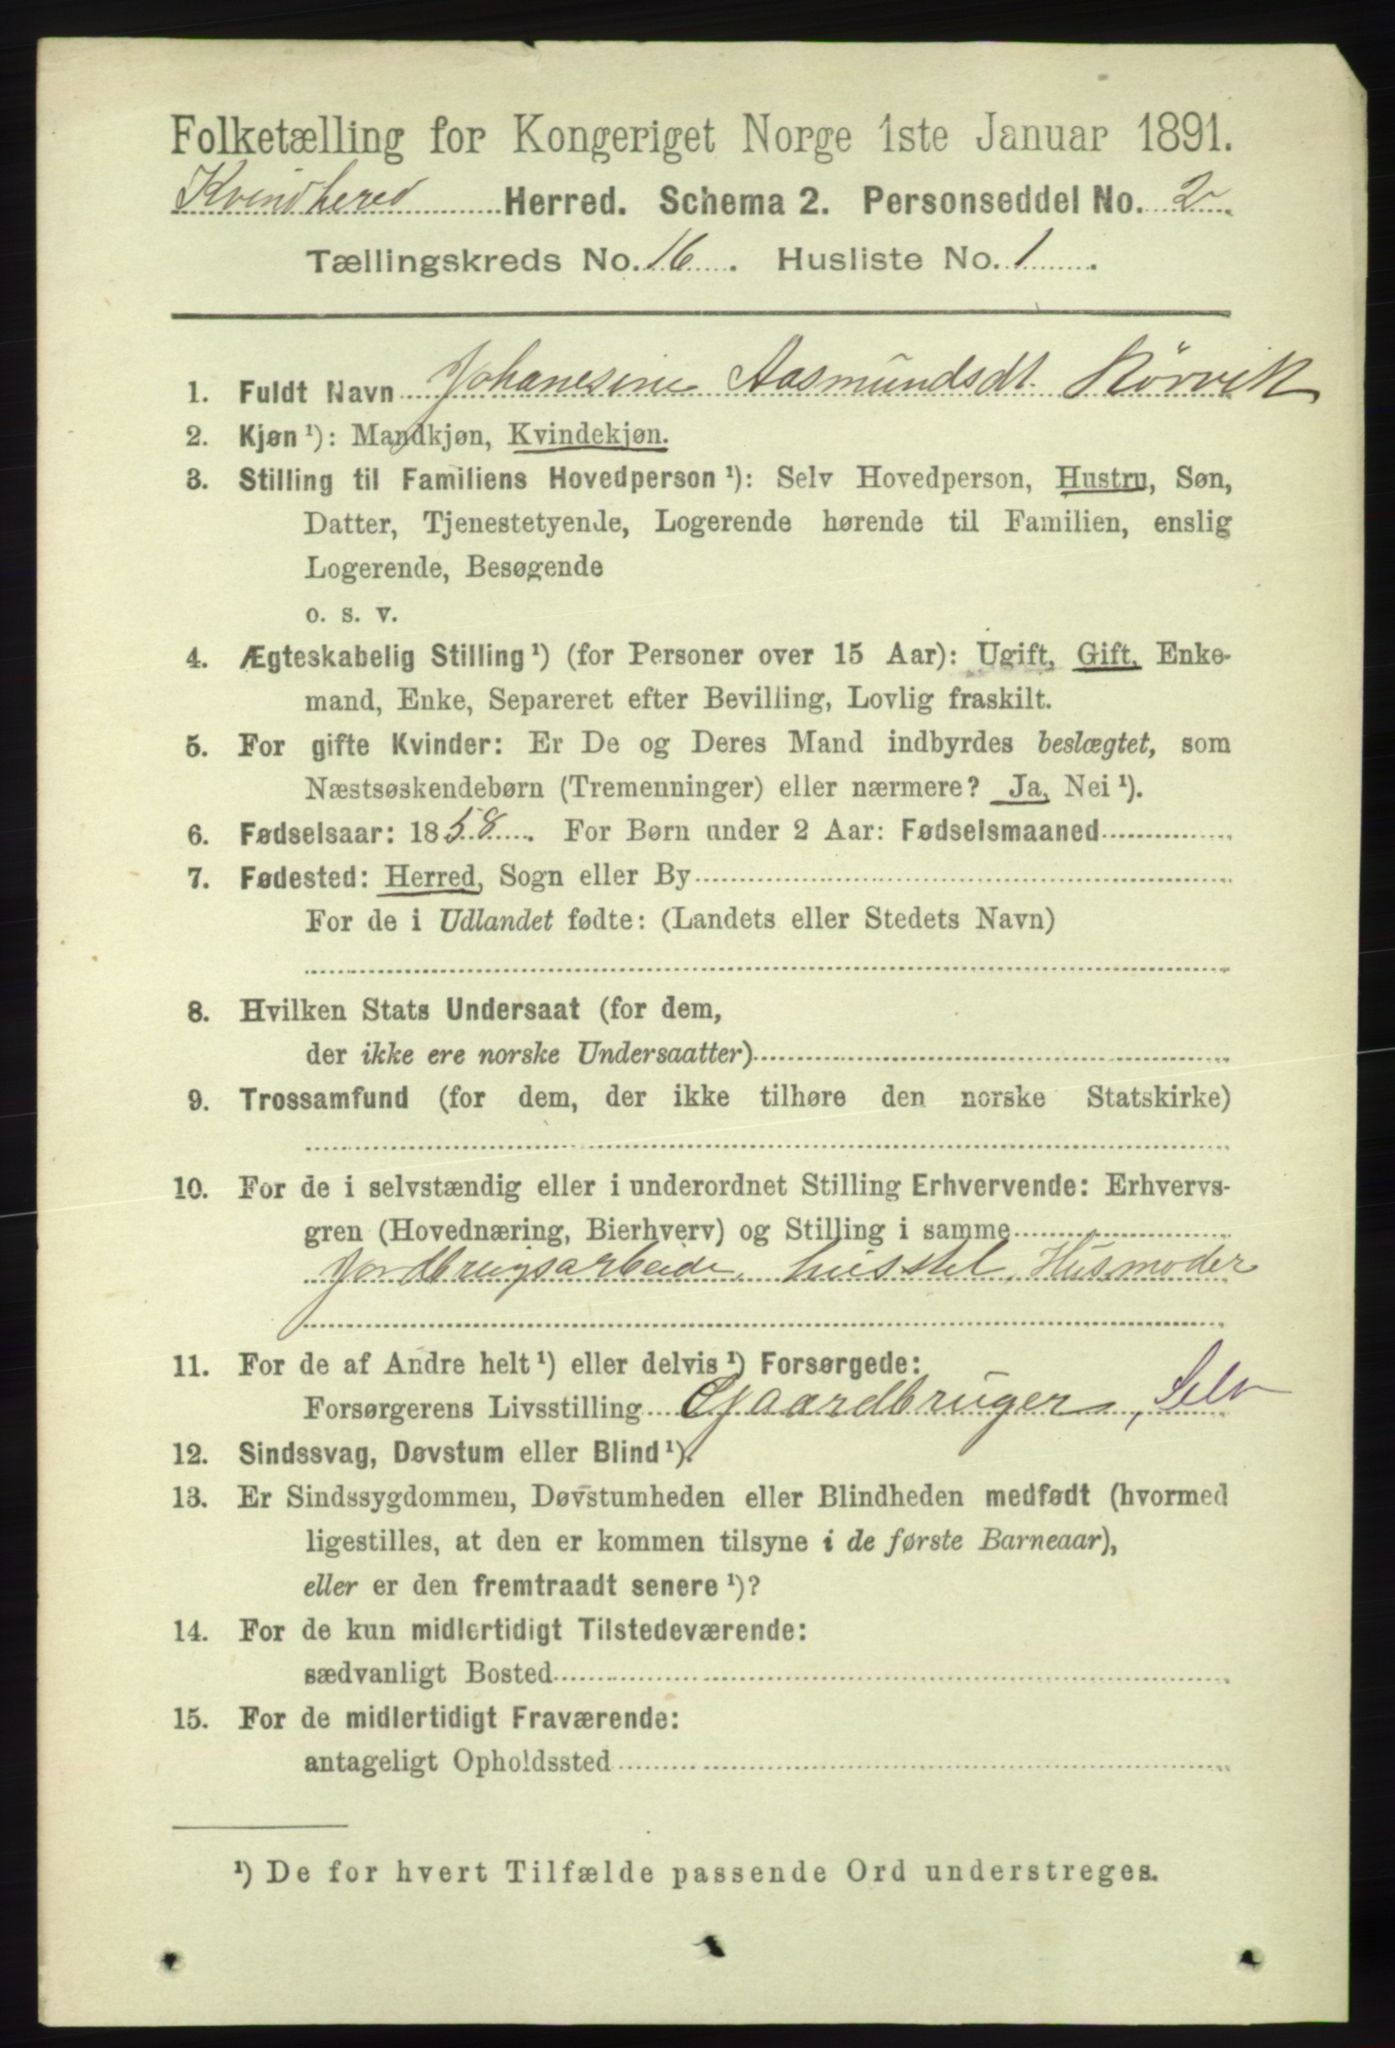 Folketælling for Kongeriget Norge 1ste Januar 1891.
Kvindhered Herred. Schema 2. Personseddel No. 2
Tællingskreds No. 16. Husliste No. 1.
1. Fuldt Navn Johanesine Aasmundsdt. Rørvik
2. Kjøn ¹): Mandkjøn, Kvindekjøn.
3. Stilling til Familiens Hovedperson ¹): Selv Hovedperson, Hustru, Søn,
Datter, Tjenestetyende, Logerende hørende til Familien, enslig
Logerende, Besøgende
o. s. v.
4. Ægteskabelig Stilling ¹) (for Personer over 15 Aar): Ugift, Gift, Enke-
mand, Enke, Separeret efter Bevilling, Lovlig fraskilt.
5. For gifte Kvinder: Er De og Deres Mand indbyrdes beslægtet, som
Næstsøskendebørn (Tremenninger) eller nærmere? Ja, Nei ¹).
6. Fødselsaar: 1858. For Børn under 2 Aar: Fødselsmaaned
7. Fødested: Herred, Sogn eller By
For de i Udlandet fødte: (Landets eller Stedets Navn)
8. Hvilken Stats Undersaat (for dem,
der ikke ere norske Undersaatter)
9. Trossamfund (for dem, der ikke tilhøre den norske Statskirke)
10. For de i selvstændig eller i underordnet Stilling Erhvervende: Erhvervs-
gren (Hovednæring, Bierhverv) og Stilling i samme
Jordbrugsarbeide, husstel, Husmoder
11. For de af Andre helt ¹) eller delvis ¹) Forsørgede:
Forsørgerens Livsstilling Gaardbruger, Selv
12. Sindssvag, Døvstum eller Blind ¹).
13. Er Sindssygdommen, Døvstumheden eller Blindheden medfødt (hvormed
ligestilles, at den er kommen tilsyne i de første Barneaar),
eller er den fremtraadt senere ¹)?
14. For de kun midlertidigt Tilstedeværende:
sædvanligt Bosted
15. For de midlertidigt Fraværende:
antageligt Opholdssted
¹) De for hvert Tilfælde passende Ord understreges.